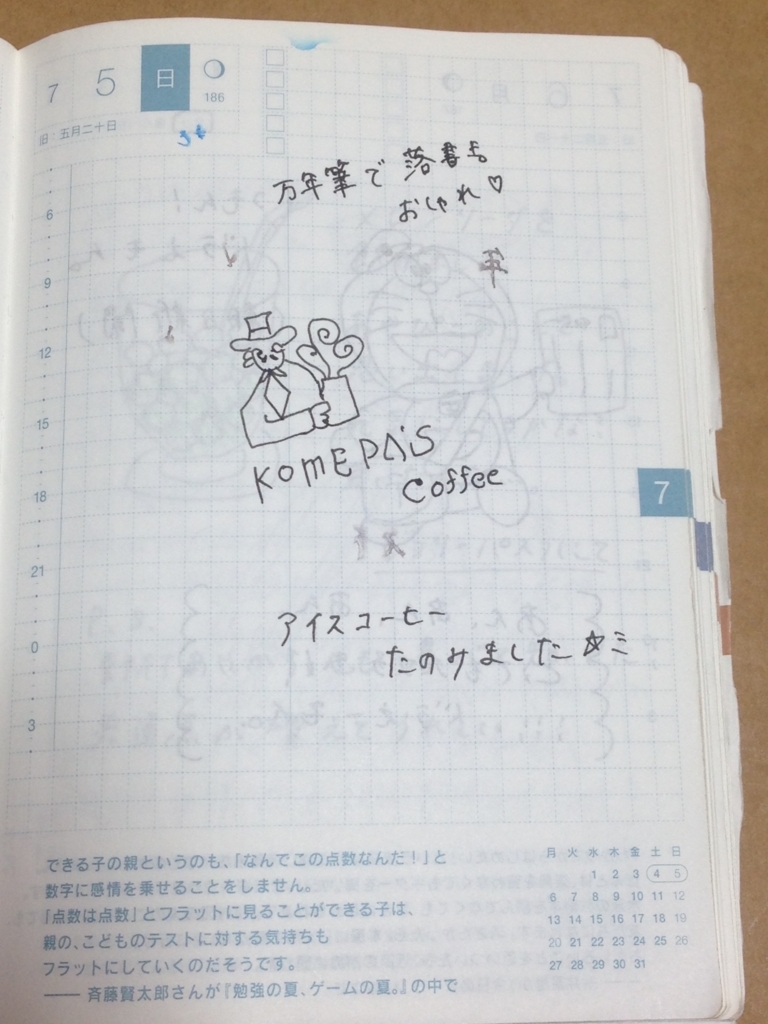 7 5 日
186
旧：五月二十日
万年筆で 落書き
おしゃれ♡
6
9
12
15
18
21
0
3
KOMEDA'S
Coffee
7
アイスコーヒー
たのみました☆ミ
できる子の親というのも、「なんでこの点数なんだ！」と
数字に感情を乗せることをしません。
「点数は点数」とフラットに見ることができる子は、
親の、こどものテストに対する気持ちも
フラットにしていくのだそうです。
—— 斉藤賢太郎さんが『勉強の夏、ゲームの夏。』の中で
月 火 水 木 金 土 日
1 2 3 4 5
6 7 8 9 10 11 12
13 14 15 16 17 18 19
20 21 22 23 24 25 26
27 28 29 30 31